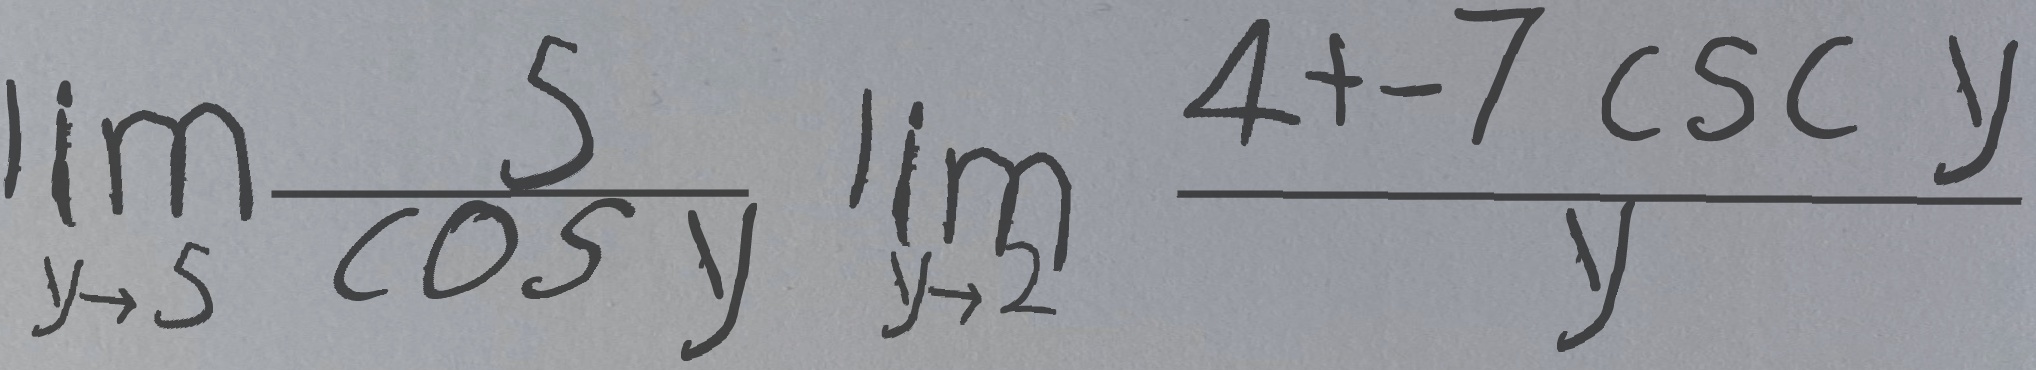 \lim_{y \to 5} \frac{5}{\cos y} \lim_{y \to 2} \frac{4 + -7 \csc y}{y}